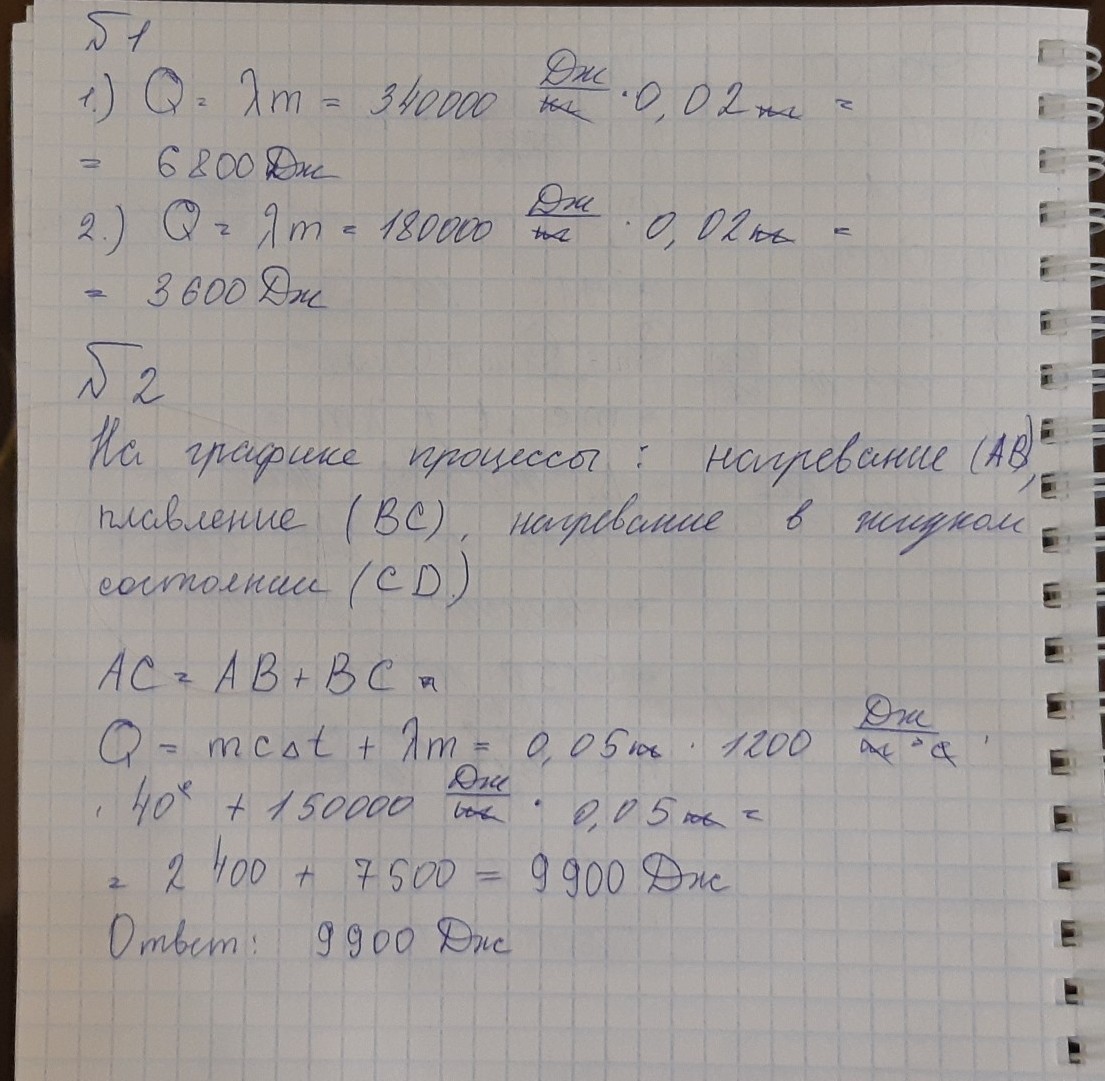 Б1
1.) Q = λm = 340000 Дж/кг · 0,02 кг =
= 6800 Дж
2.) Q = λm = 180000 Дж/кг · 0,02 кг =
= 3600 Дж
Б2
На графике процессы: нагревание (AB),
плавление (BC), нагревание в жидком
состоянии (CD.)
AC = AB + BC
Q = mcΔt + λm = 0,05 кг · 1200 Дж/кг °C ·
· 40° + 150000 Дж/кг · 0,05 кг =
= 2400 + 7500 = 9900 Дж
Ответ: 9900 Дж